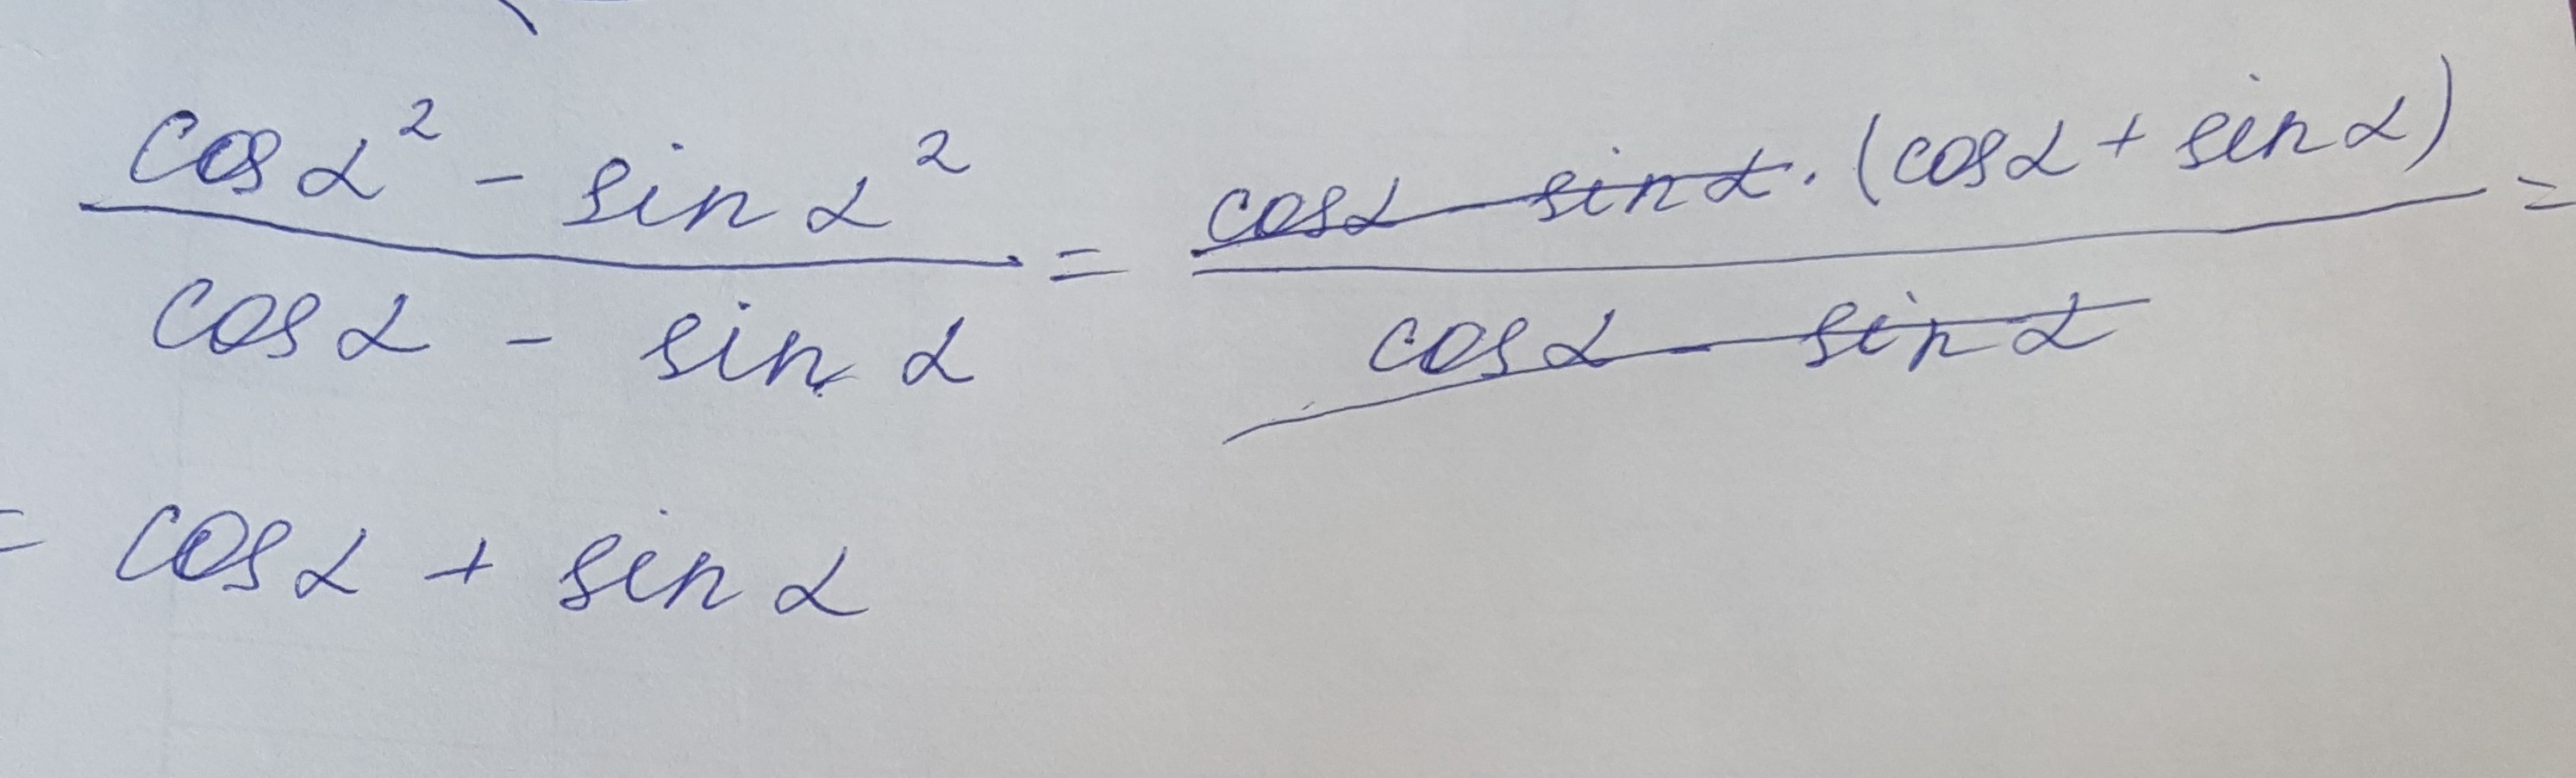 cos α² - sin α² / cos α - sin α = cosα - sin α · (cosα + sin α) / cos α - sin α =
= cos α + sin α